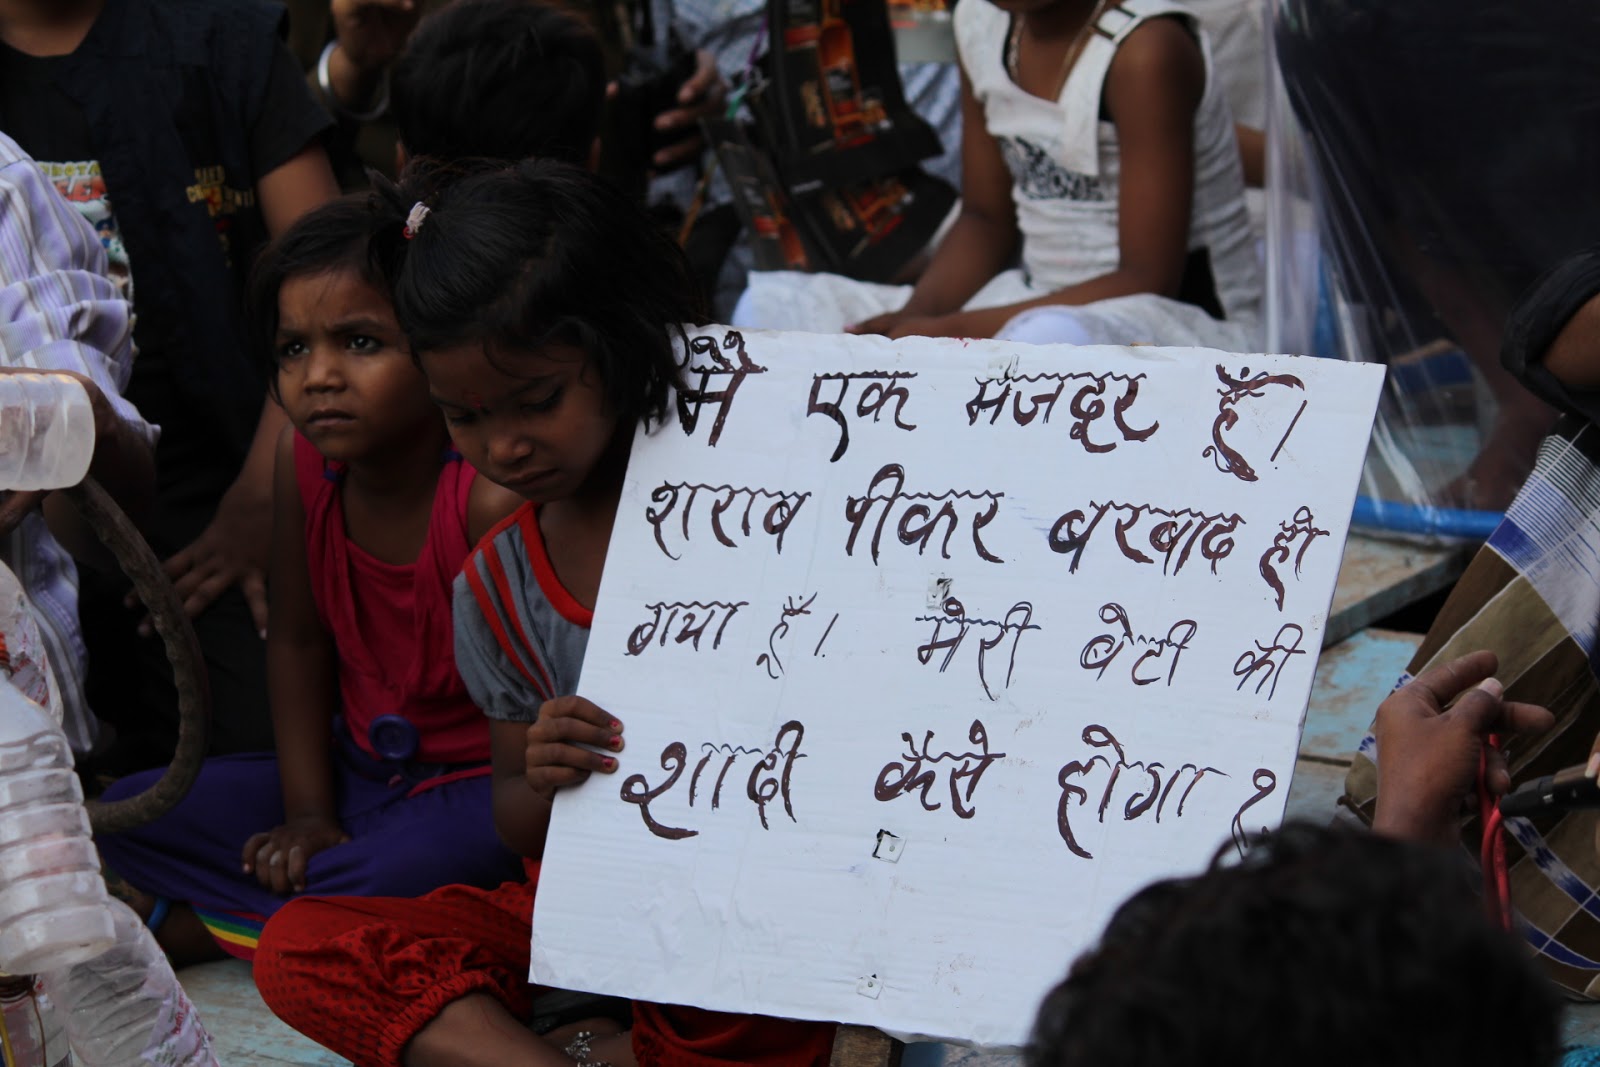 मैं एक मजदूर हूँ।
शराब पीकर बरबाद हो
गया हूँ। मेरी बेटी की
शादी कैसे होगा?